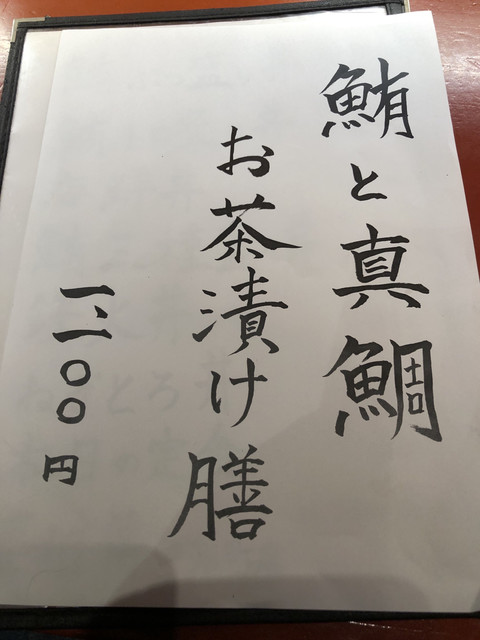 鮪と真鯛
お茶漬け膳
一二〇〇円